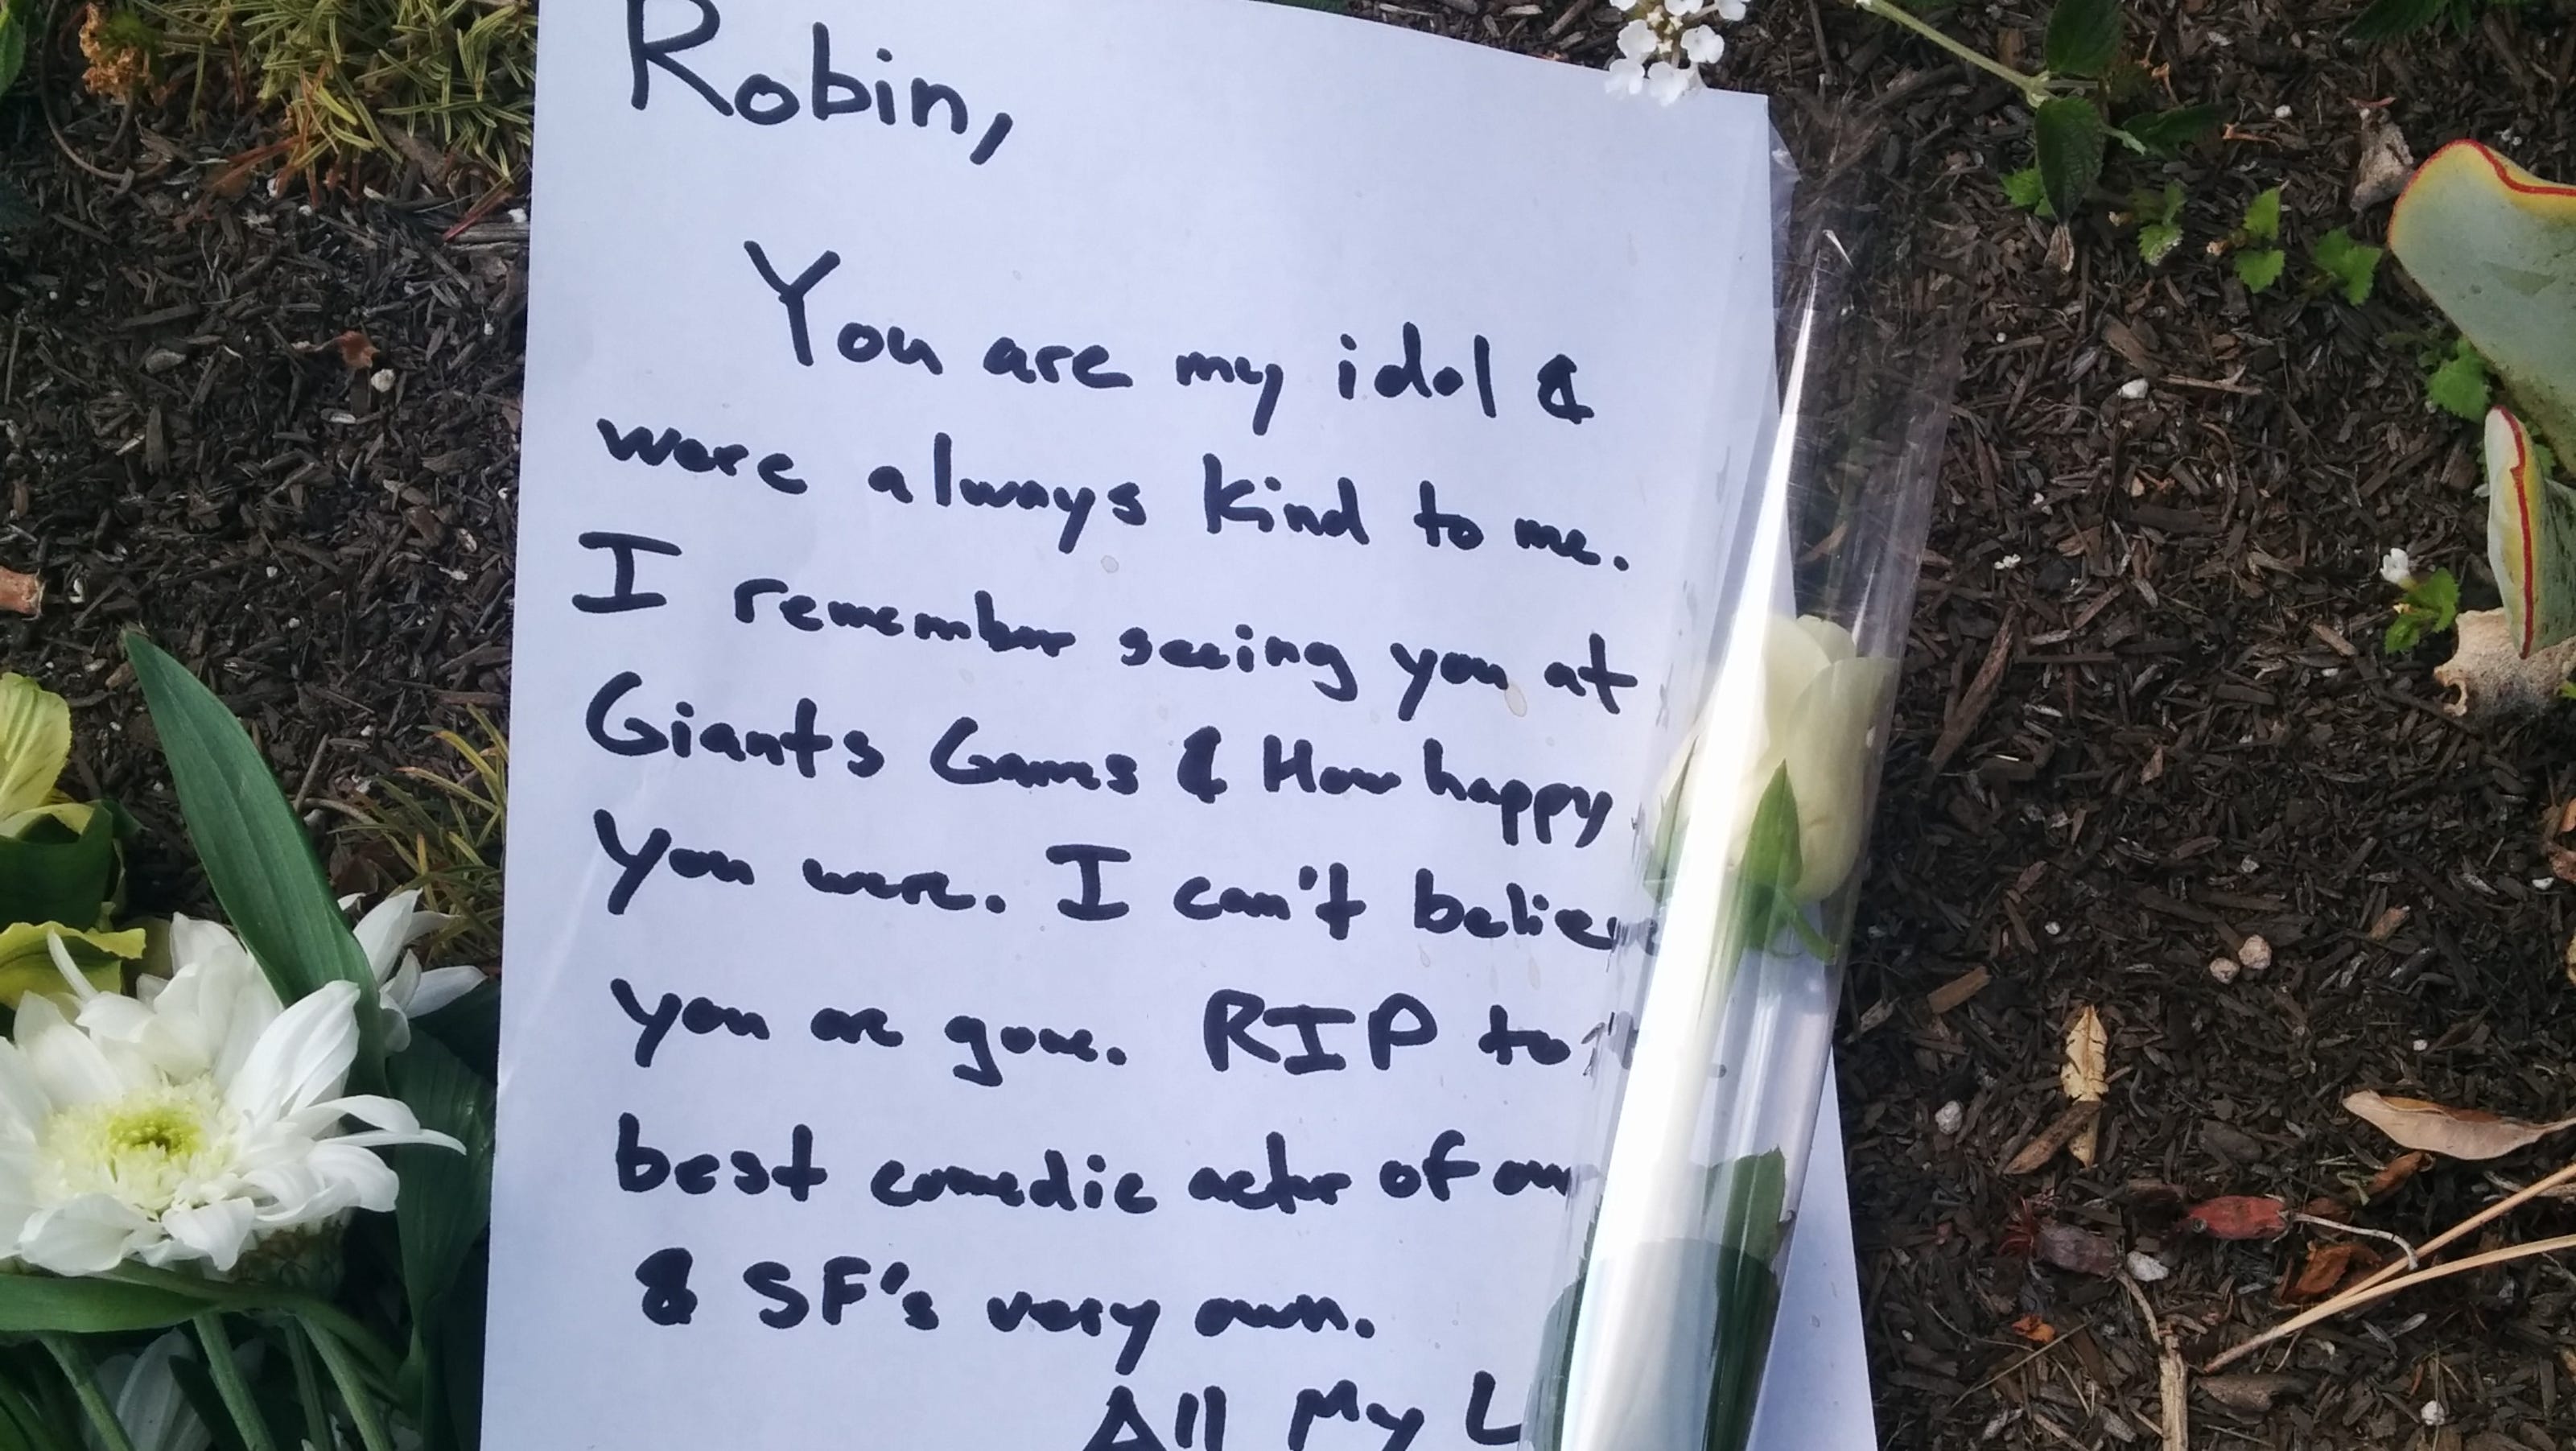 Robin,
You are my idol &
were always kind to me.
I remember seeing you at
Giants Games & How happy
you were. I can't believe
you are gone. RIP to
best comedic actor of our
& SF's very own.
All My L